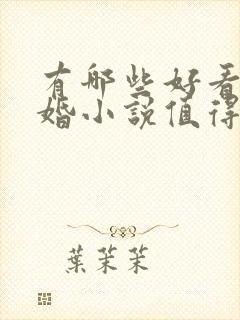 有哪些好看
婚小说值得
葉茉茉